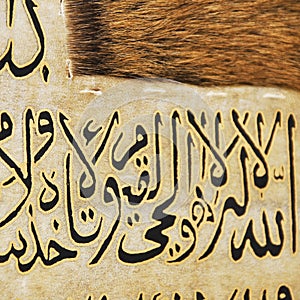 الله لا إله إلا هو الحي القيوم لا تأخذه س